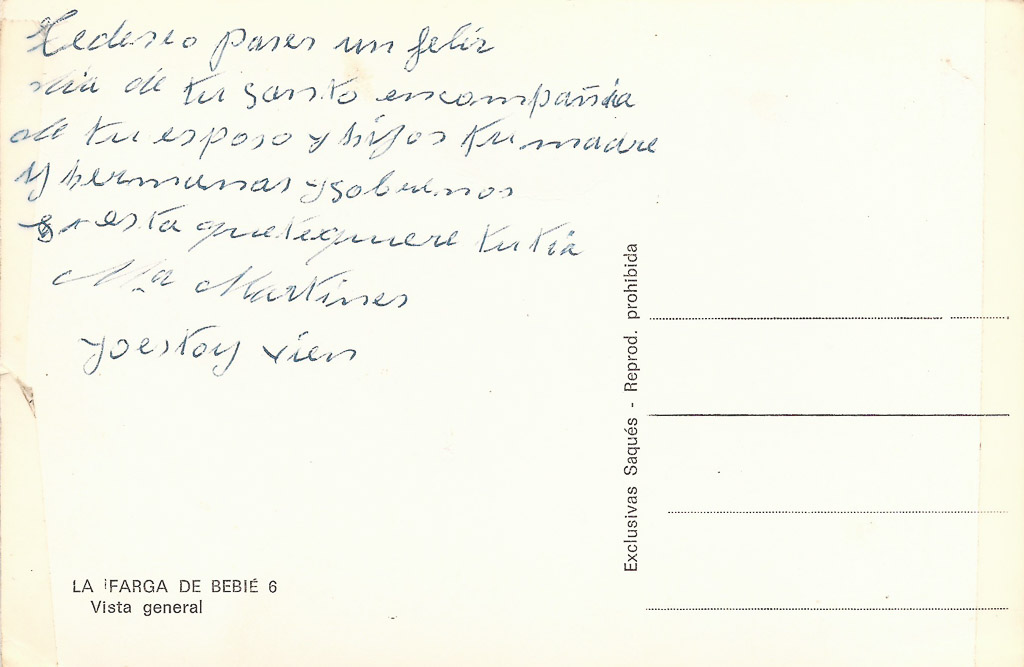 Tedeseo pases un feliz
dia de tu santo encompañia
de tu esposo y hijos tu madre
y hermanas y sobrinos
esta quetequiere tu tia
Mª Martines
yoestoy vien
Exclusivas Saqués - Reprod. prohibida
LA FARGA DE BEBIÉ 6
Vista general